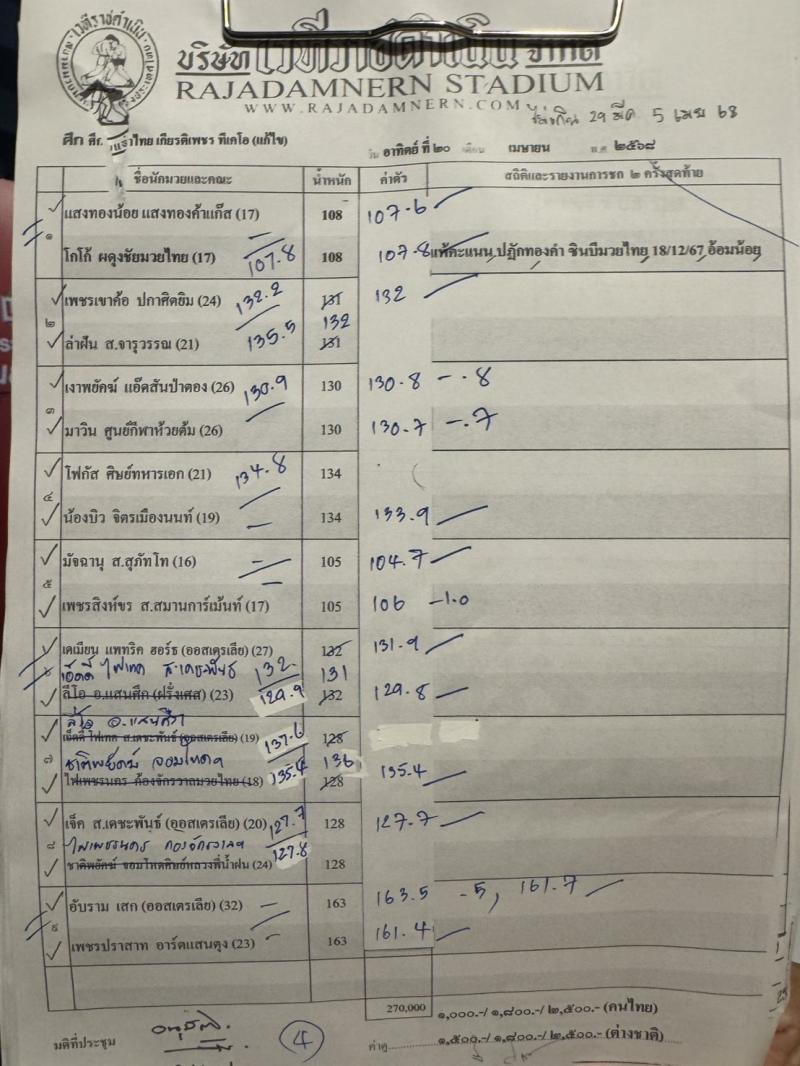 บริษัท เวทีราชดำเนิน จำกัด
RAJADAMNERN STADIUM
WWW.RAJADAMNERN.COM
29 มีค 5 เมย 68
ศึก ศึก เกียรติเพชร ทีเคโอ (แก้ไข) วัน อาทิตย์ ที่ ๒๐ เดือน เมษายน พ.ศ. ๒๕๖๘
ชื่อนักมวยและคณะ น้ำหนัก ค่าตัว สถิติและรายงานการชก ๒ ครั้งสุดท้าย
แสงทองน้อย แสงทองค้าแก๊ส (17) 108 107-6
๑
โกโก้ ผดุงชัยมวยไทย (17) 107.8 108 107-8 แพ้คะแนน ปฏักทองคำ ซินบีมวยไทย 18/12/67 อ้อมน้อย
เพชรเขาค้อ ปกาศิตยิม (24) 132.2 131 132
๒ 132
ล่าฝัน ส.จารุวรรณ (21) 135.5 131
เงาพยัคฆ์ แอ๊ดสันป่าตอง (26) 130.9 130 130-8 - .8
๓
มาวิน ศูนย์กีฬาห้วยต้ม (26) 130 130-7 -.7
โฟกัส ศิษย์ทหารเอก (21) 134.8 134
๔
น้องบิว จิตรเมืองนนท์ (19) 134 133.9
มัจฉานุ ส.สุภัทโท (16) 105 104.7
๕
เพชรสิงห์ขร ส.สมานการ์เม้นท์ (17) 105 106 -1.0
เดเมียน แพทริค ฮอร์ธ (ออสเตรเลีย) (27) 132 131.9
เอ็ดดี้ ไฟเทค ส.เดชะพันธ์ 132- 131
ลีโอ อ.แสนศึก (ฝรั่งเศส) (23) 129.9 132 129.8
ลีโอ อ.แสนศึก
เอ็ดดี้ ไฟเทค ส.เดชะพันธ์ (ออสเตรเลีย) (19) 137.6 128
๗ ชาติพยัคฆ์ จอมโหดฯ 136
ไฟเพชรนคร ก้องจักรวาลมวยไทย (18) 135.4 128 135.4
เจ็ค ส.เดชะพันธ์ (ออสเตรเลีย) (20) 127.7 128 127-7
๘ ไฟเพชรนคร ก้องจักรวาลฯ
ชาติพยัคฆ์ จอมโหดศิษย์หลวงพี่น้ำฝน (24) 127.8 128
อับราม เสก (ออสเตรเลีย) (32) 163 163.5 -5, 161.7
๙
เพชรปราสาท อาร์ตแสนตุง (23) 163 161.4
270,000 ๑,๐๐๐.-/ ๑,๘๐๐.-/ ๒,๕๐๐.- (คนไทย)
มติที่ประชุม 4 ค่าดู ๑,๕๐๐.-/ ๑,๘๐๐.-/ ๒,๕๐๐.- (ต่างชาติ)